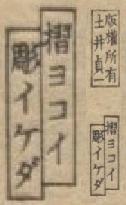 版權所有
土井貞一
彫イケダ
摺ヨコイ
摺ヨコイ
彫イケダ